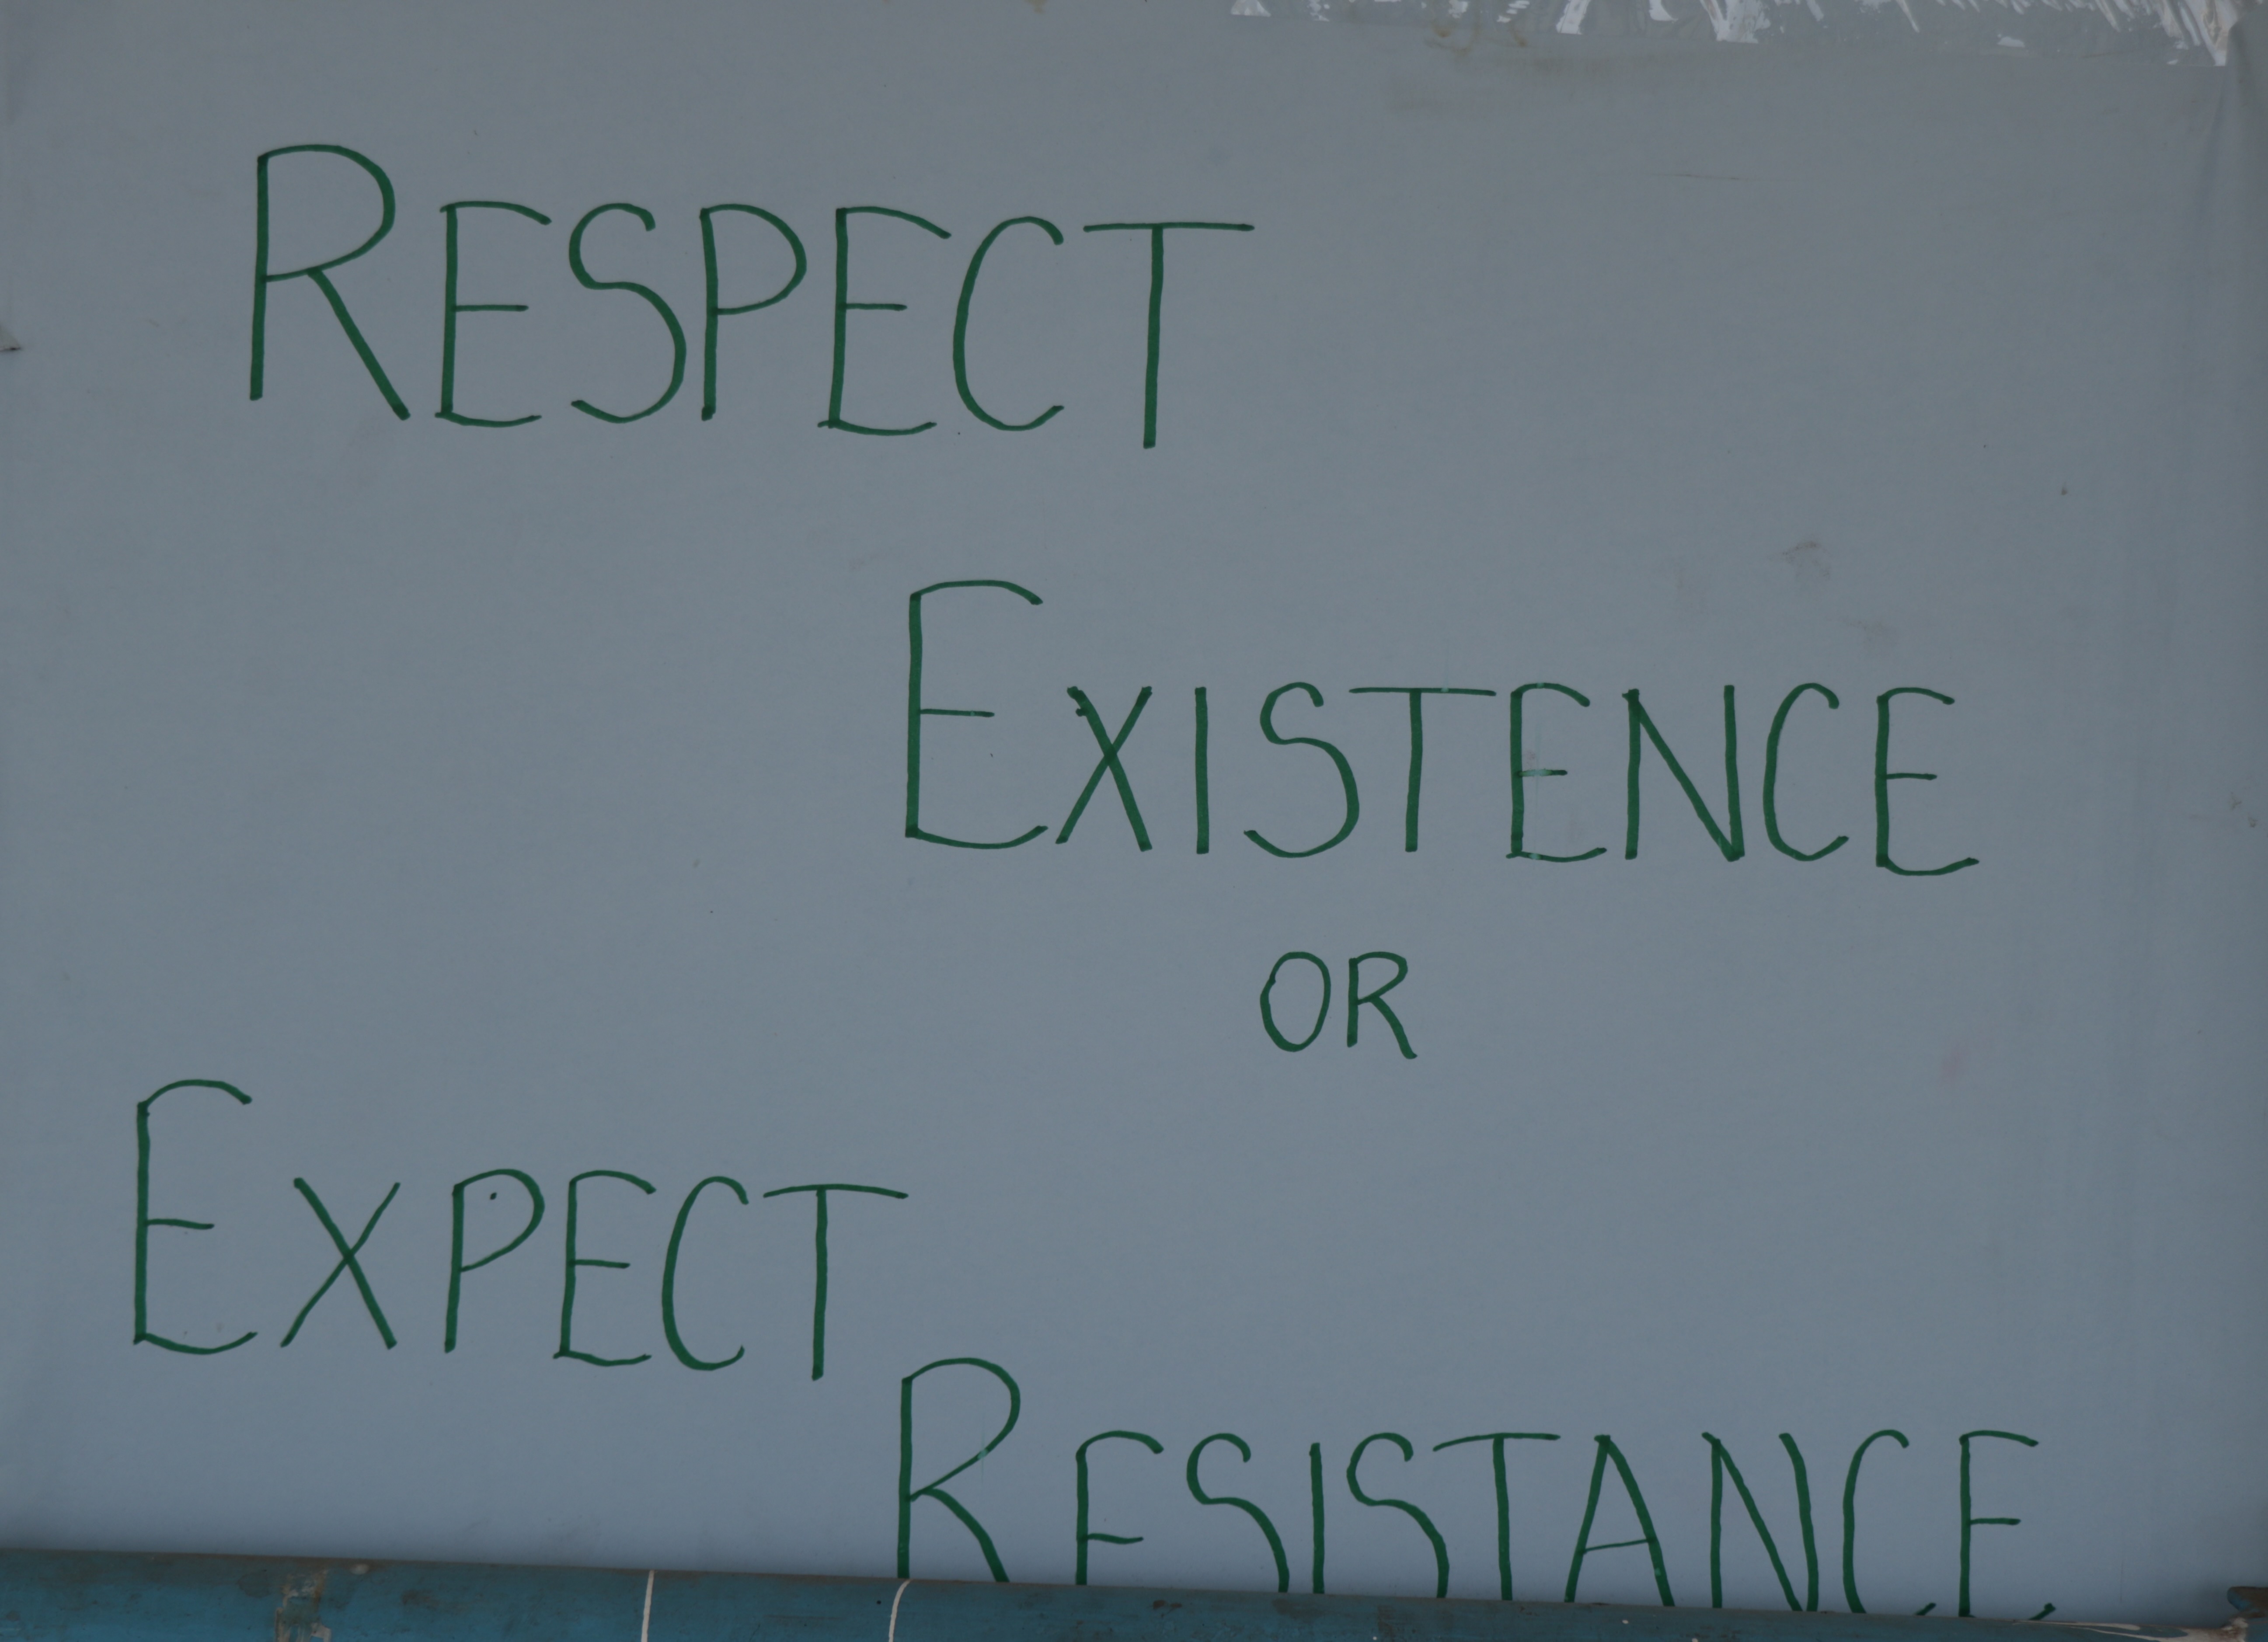 RESPECT
EXISTENCE
OR
EXPECT
RESISTANCE